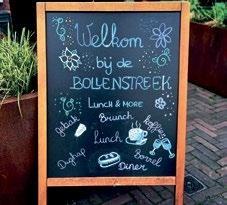 Welkom
bij de
BOLLENSTREEK
LUNCH & MORE
Brunch
gebak
koffie
Lunch
Borrel
Diner